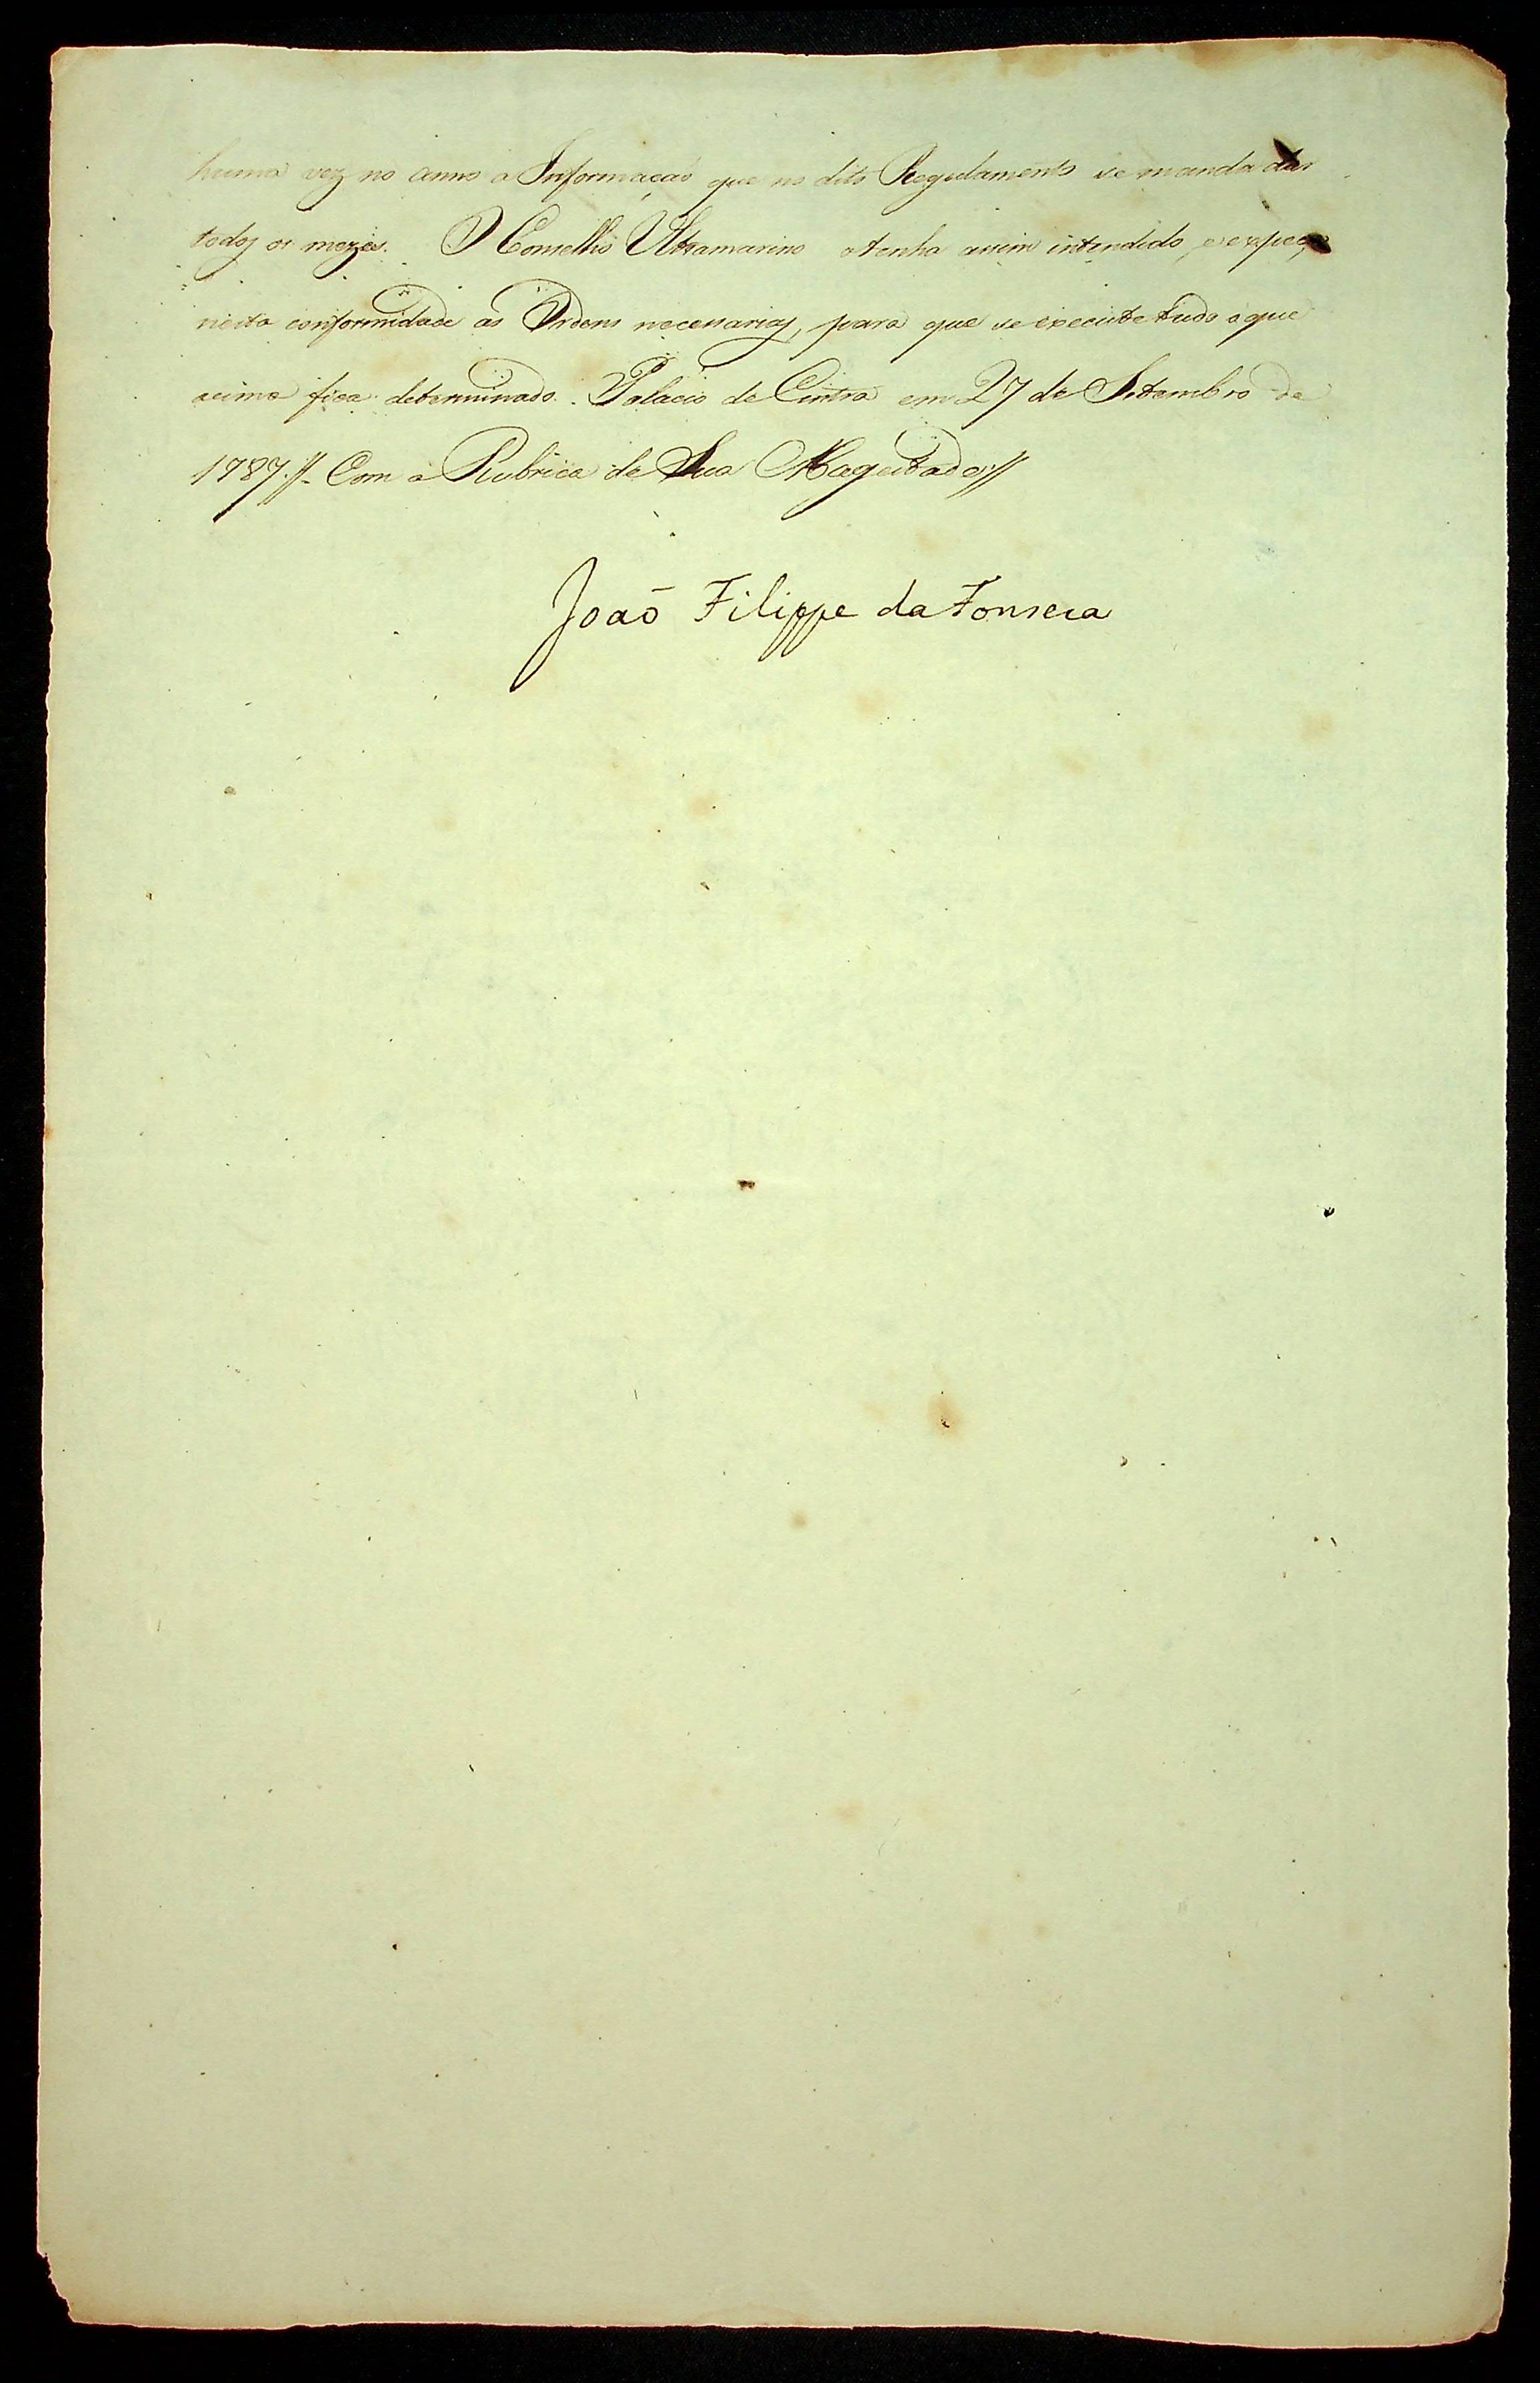 huma vez no anno a Informaçaõ que no dito Regulamento se manda dar
todos os mezes. O Conselho Ultramarino o tenha assim intendido, e expeça
nesta conformidade as Ordens necessarias, para que se execute tudo o que
acima fica determinado. Palacio de Cintra em 27 de Setembro de
1787.//- Com a Rubrica de Sua Magestade//
Joaõ Filippe da Fonseca